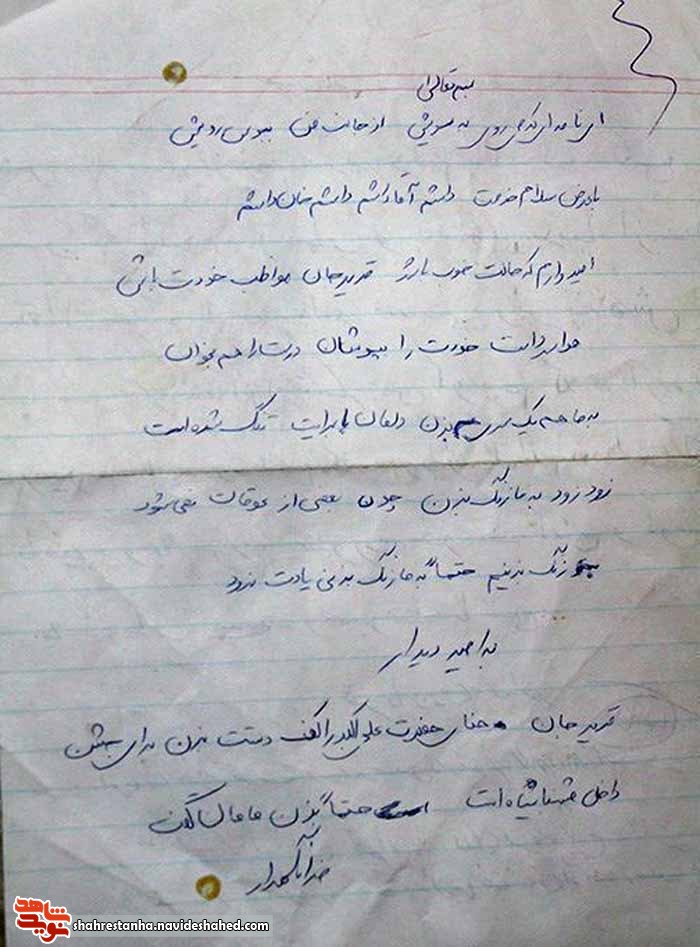 بسمه تعالی
ای نامه ای که می روی به سویش از جانب من ببوس رویش
با عرض سلام خدمت داداشم آقا داداشم داداشم خان داداشم
امیدوارم که حالت خوب باشد قدیر جان مواظب خودت باش
هوا سرد است خودت را بپوشان درست را هم بخوان
به ما هم یک سری بزن دلمان برایت تنگ شده است
زود زود به ما زنگ بزن چون بعضی از عوقات نمی شود
زنگ بزنیم حتماً به ما زنگ بزنی یادت نرود
به امید دیدار
قدیر جان حنای حضرت علی اکبر را کف دستت بزن برای جشن
داخل است حتماً بزن مامان گفت
خدانگهدار
نوید شاهد
shahrestanha.navideshahed.com